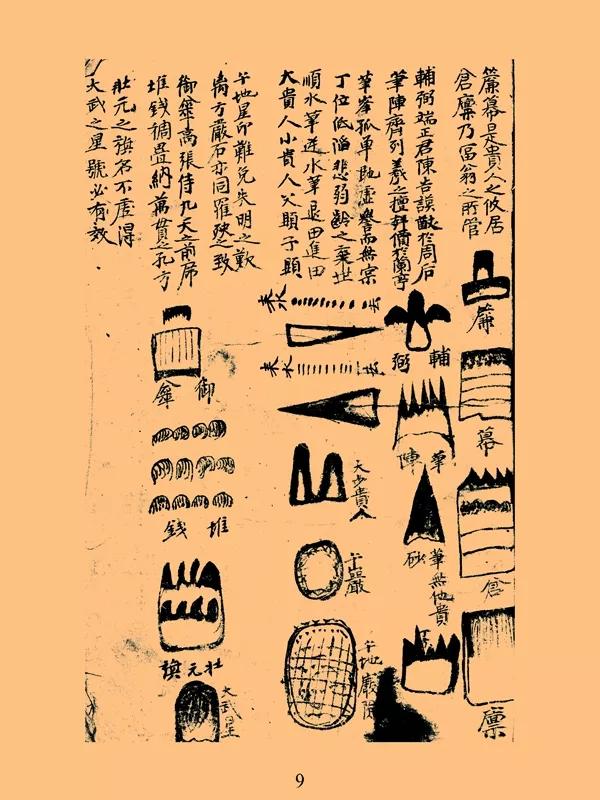 簾幕是貴人之攸居
倉廩乃冨翁之所管
輔弼端正君陳吉謨猷於周后
筆陣齊列羲之擅於蘭亭
筆峯孤單虛譽而無宗
丁位低陷悲弱齡之棄世
順水筆逆水筆退田進田
大貴人小貴人父顯子顯
午地星卯難免失明之歎
离方嚴石亦同罹殃之致
御傘高張侍九天之前席
堆錢稠疊納萬貫之孔方
壯元之旗名不虛得
大武之星號必有效
簾
幕
倉
廩
輔弼
筆陣
筆無他貴
砂
來水
去
來水
去
大少貴人
午嚴
午地嚴
御傘
堆錢
壯元旗
大武星
9